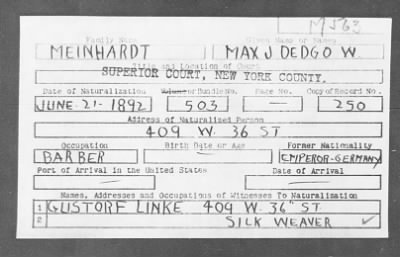 M563
Family Name Given Name or Names
MEINHARDT MAX J DEDGO W.
Title and Location of Court
SUPERIOR COURT, NEW YORK COUNTY.
Date of Naturalization Volume or Bundle No. Page No. Copy of Record No.
JUNE-21-1892 503 — 250
Address of Naturalized Person
409 W. 36 ST
Occupation Birth Date or Age Former Nationality
BARBER — EMPEROR-GERMANY
Port of Arrival in the United States Date of Arrival
— —
Names, Addresses and Occupations of Witnesses To Naturalization
1 GUSTORF LINKE 409 W. 36" ST
2 SILK WEAVER ✓